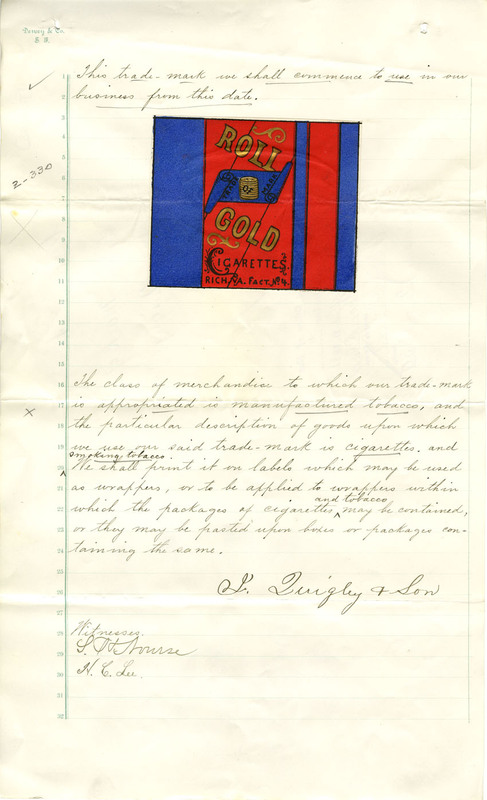 Dewey & Co.
S. F.
1 This trade-mark we shall commence to use in our
2 business from this date.
3
4
5
2-330
6
7
8
9
10
11
12
13
14
15
ROLL
TRADE OF MARK
GOLD
CIGARETTES
RICH. VA. FACT. No. 4.
16 The class of merchandise to which our trade-mark
17 is appropriated is manufactured tobacco, and
18 the particular description of goods upon which
19 we use our said trade-mark is cigarettes, and
smoking tobacco.
20 We shall print it on labels which may be used
21 as wrappers, or to be applied to wrappers within
and tobacco
22 which the packages of cigarettes, may be contained,
23 or they may be pasted upon boxes or packages con-
24 taining the same.
25
26 Quigley & Son
27
28 Witnesses.
29 Nourse
30 H. C. Lee.
31
32